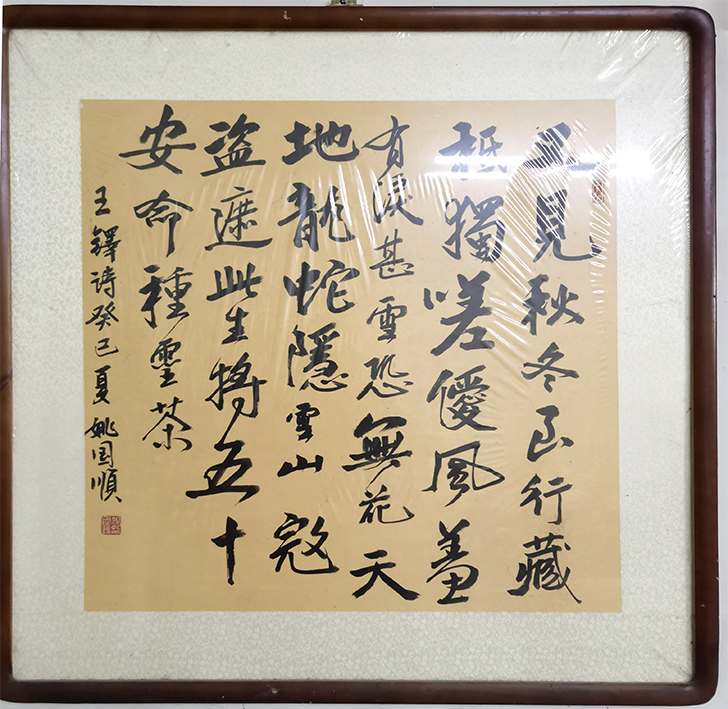 見秋冬行藏
祇獨嗟優風羞
有淚甚雪恐無花天
地龍蛇隱雲山寇
盜遮此生將五十
安命種靈茶
王鐸詩癸巳夏姚国順